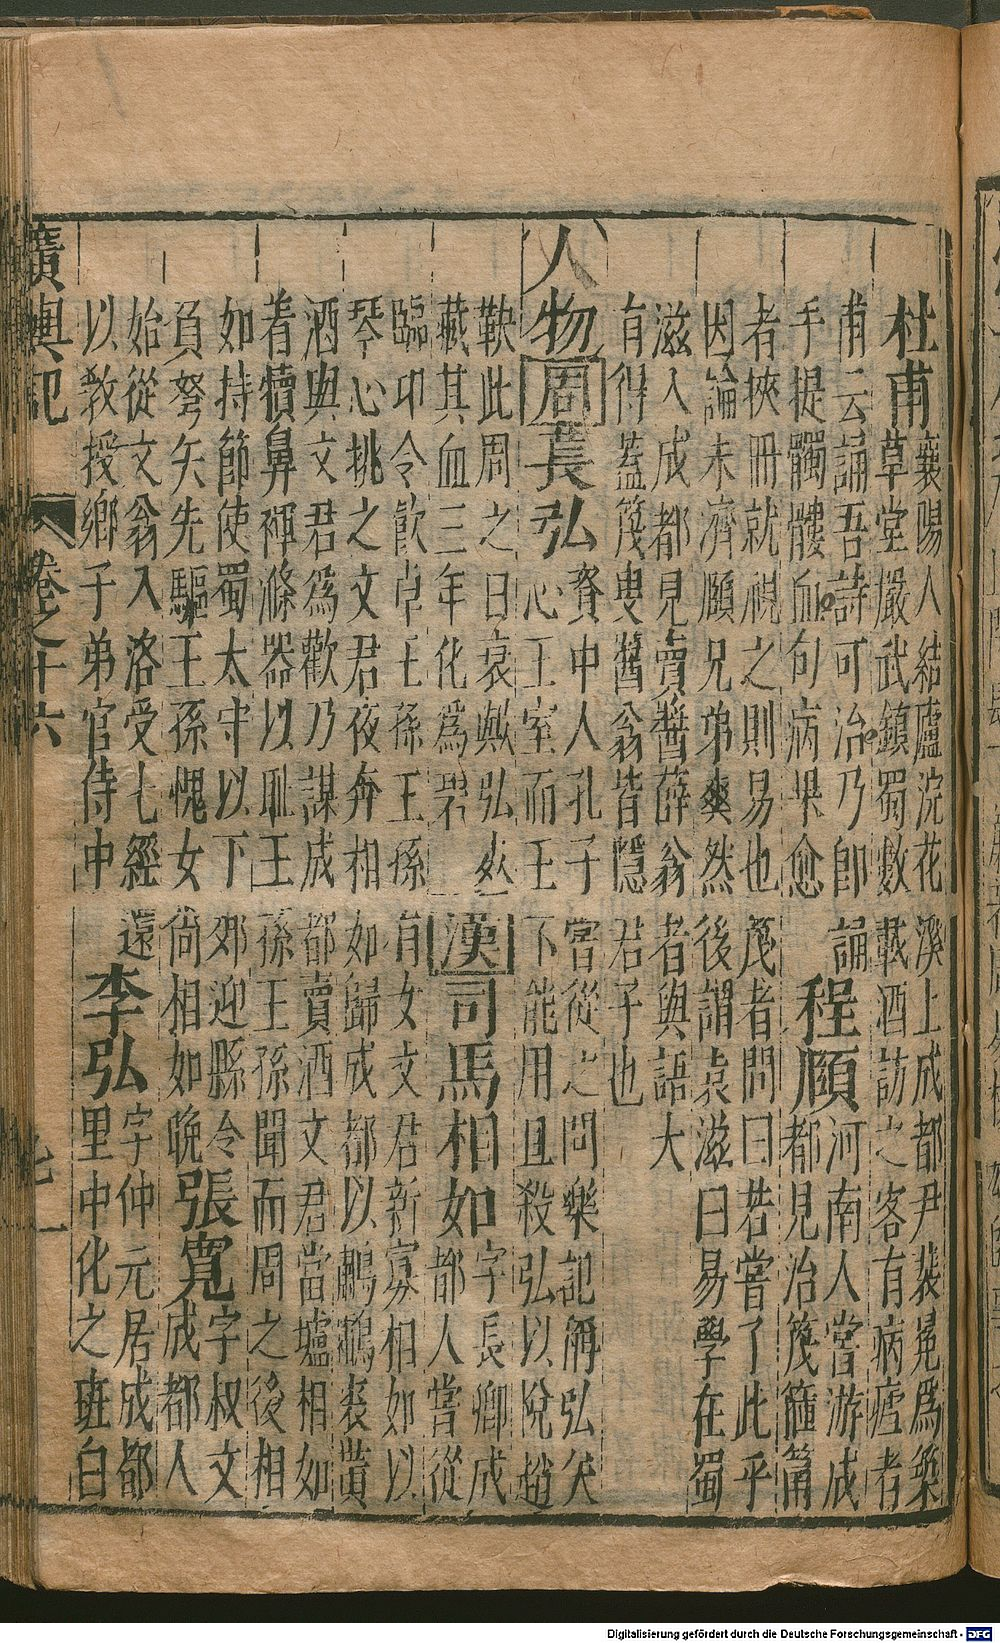 杜甫
襄陽人結廬浣花溪上成都尹裴冕爲築
草堂嚴武鎮蜀數載酒訪之客有病瘧者
甫云誦吾詩可治乃即誦
手提髑髏血句病果愈
程頤
河南人嘗游成
都見治篾箍箭
者挾冊就視之則易也篾者問曰若嘗了此乎
因論未濟頤兄弟爽然後謂袁滋曰易學在蜀
滋入成都見賣醬薛翁者與語大
有得蓋篾叟醬翁皆隱君子也
人物 周 萇弘
資中人孔子嘗從之問樂記稱弘矢
心王室而王下能用且殺弘以悅趙
鞅此周之日衰歟弘死
藏其血三年化爲碧
漢 司馬相如
字長卿成
都人嘗從
臨卭令飲卓王孫王孫有女文君新寡相如以
琴心挑之文君夜奔相如歸成都以鷫鸘裘貰
酒與文君爲歡乃謀成都賣酒文君當壚相如
着犢鼻褌滌器以耻王孫王孫聞而周之後相
如持節使蜀太守以下郊迎縣令
負弩矢先驅王孫愧女尚相如晚
張寬
字叔文
成都人
始從文翁入洛受七經還
以教授鄉子弟官侍中
李弘
字仲元居成都
里中化之班白
廣輿記 卷之十六
Digitalisierung gefördert durch die Deutsche Forschungsgemeinschaft - DFG